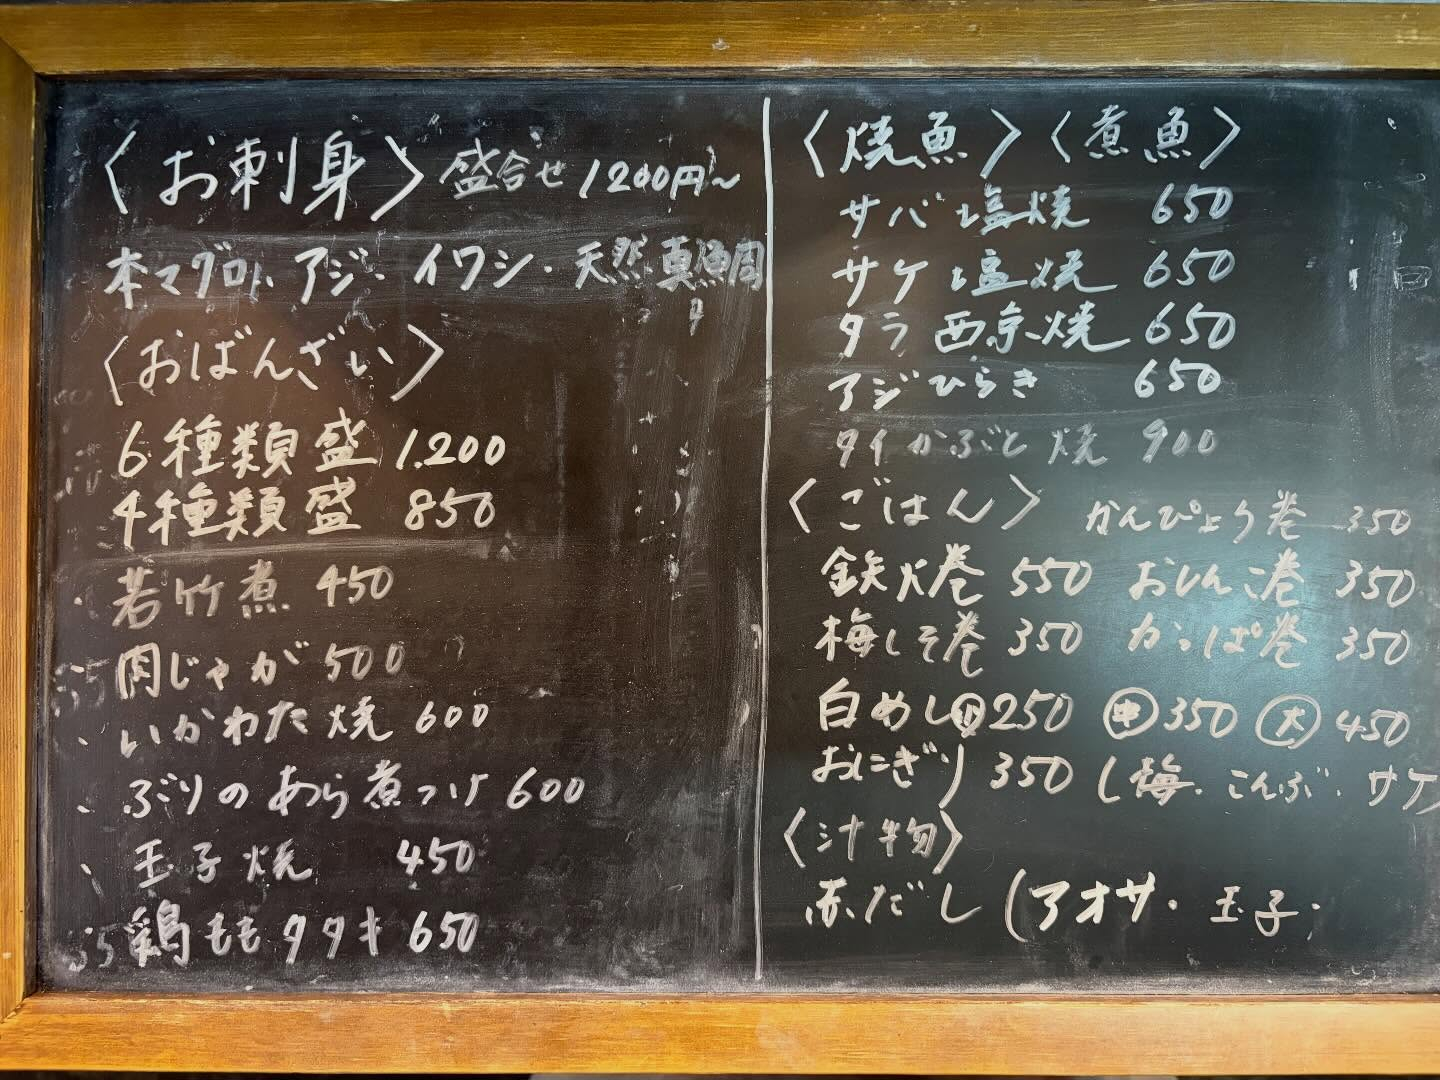 〈お刺身〉盛合せ 1200円〜
本マグロ、アジ・イワシ・天然真鯛
〈おばんざい〉
6種類盛 1.200
4種類盛 850
・若竹煮 450
・肉じゃが 500
・いかわた焼 600
・ぶりのあら煮つけ 600
・玉子焼 450
・鶏ももタタキ 650
〈焼魚〉〈煮魚〉
サバ塩焼 650
サケ塩焼 650
タラ西京焼 650
アジひらき 650
タイかぶと焼 900
〈ごはん〉 かんぴょう巻 350
鉄火巻 550 おしんこ巻 350
梅しそ巻 350 かっぱ巻 350
白めし小250 中350 大450
おにぎり 350 (梅・こんぶ・サケ)
〈汁物〉
赤だし (アオサ・玉子・